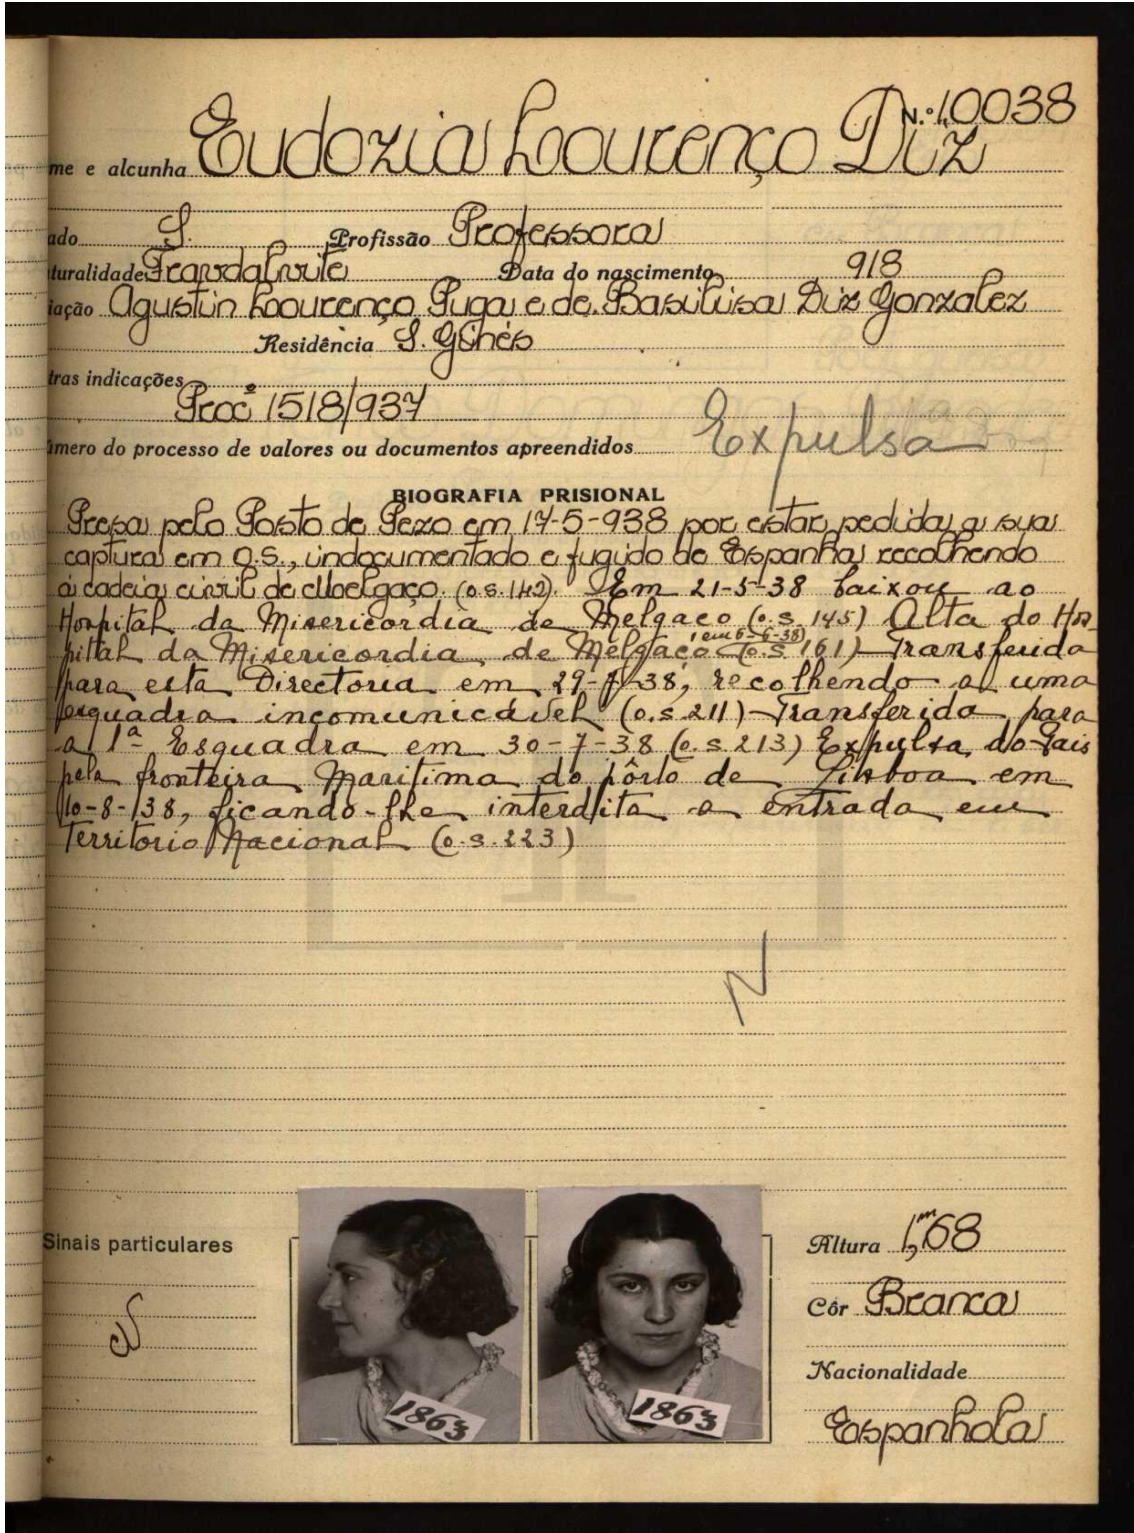 N.º 10038
me e alcunha Eudozia Lourenço Diz
ado S. Profissão Professora
turalidade Data do nascimento 918
iação Agustin Lourenço Puga e de Basiliisa Diz Gonzalez
Residência S. Ginés
tras indicações
Procº 1518/937
úmero do processo de valores ou documentos apreendidos Expulsa
BIOGRAFIA PRISIONAL
Presa pelo Posto de Pezo em 17-5-938 por estar pedida a sua
captura em O.S., indocumentado e fugido de Espanha recolhendo
á cadeia civil de Melgaço. (o.s.142). Em 21-5-38 baixou ao
Hospital da Misericordia de Melgaco (o.s.145) Alta do Hos
pital da Misericordia de Melgaço em 6-6-38 (o.s.161) Transferida
para esta Directoria em 29-7-38, recolhendo a uma
esquadra incomunicável (o.s.211) Transferida para
a 1ª Esquadra em 30-7-38 (o.s.213) Expulsa do Pais
pela fronteira Maritima do pôrto de Lisboa em
10-8-138, ficando-lhe interdita a entrada em
Territorio Nacional (o.s.223)
N
Sinais particulares
Altura 1,68 m
Côr Branca
Nacionalidade
Espanhola
1863
1863